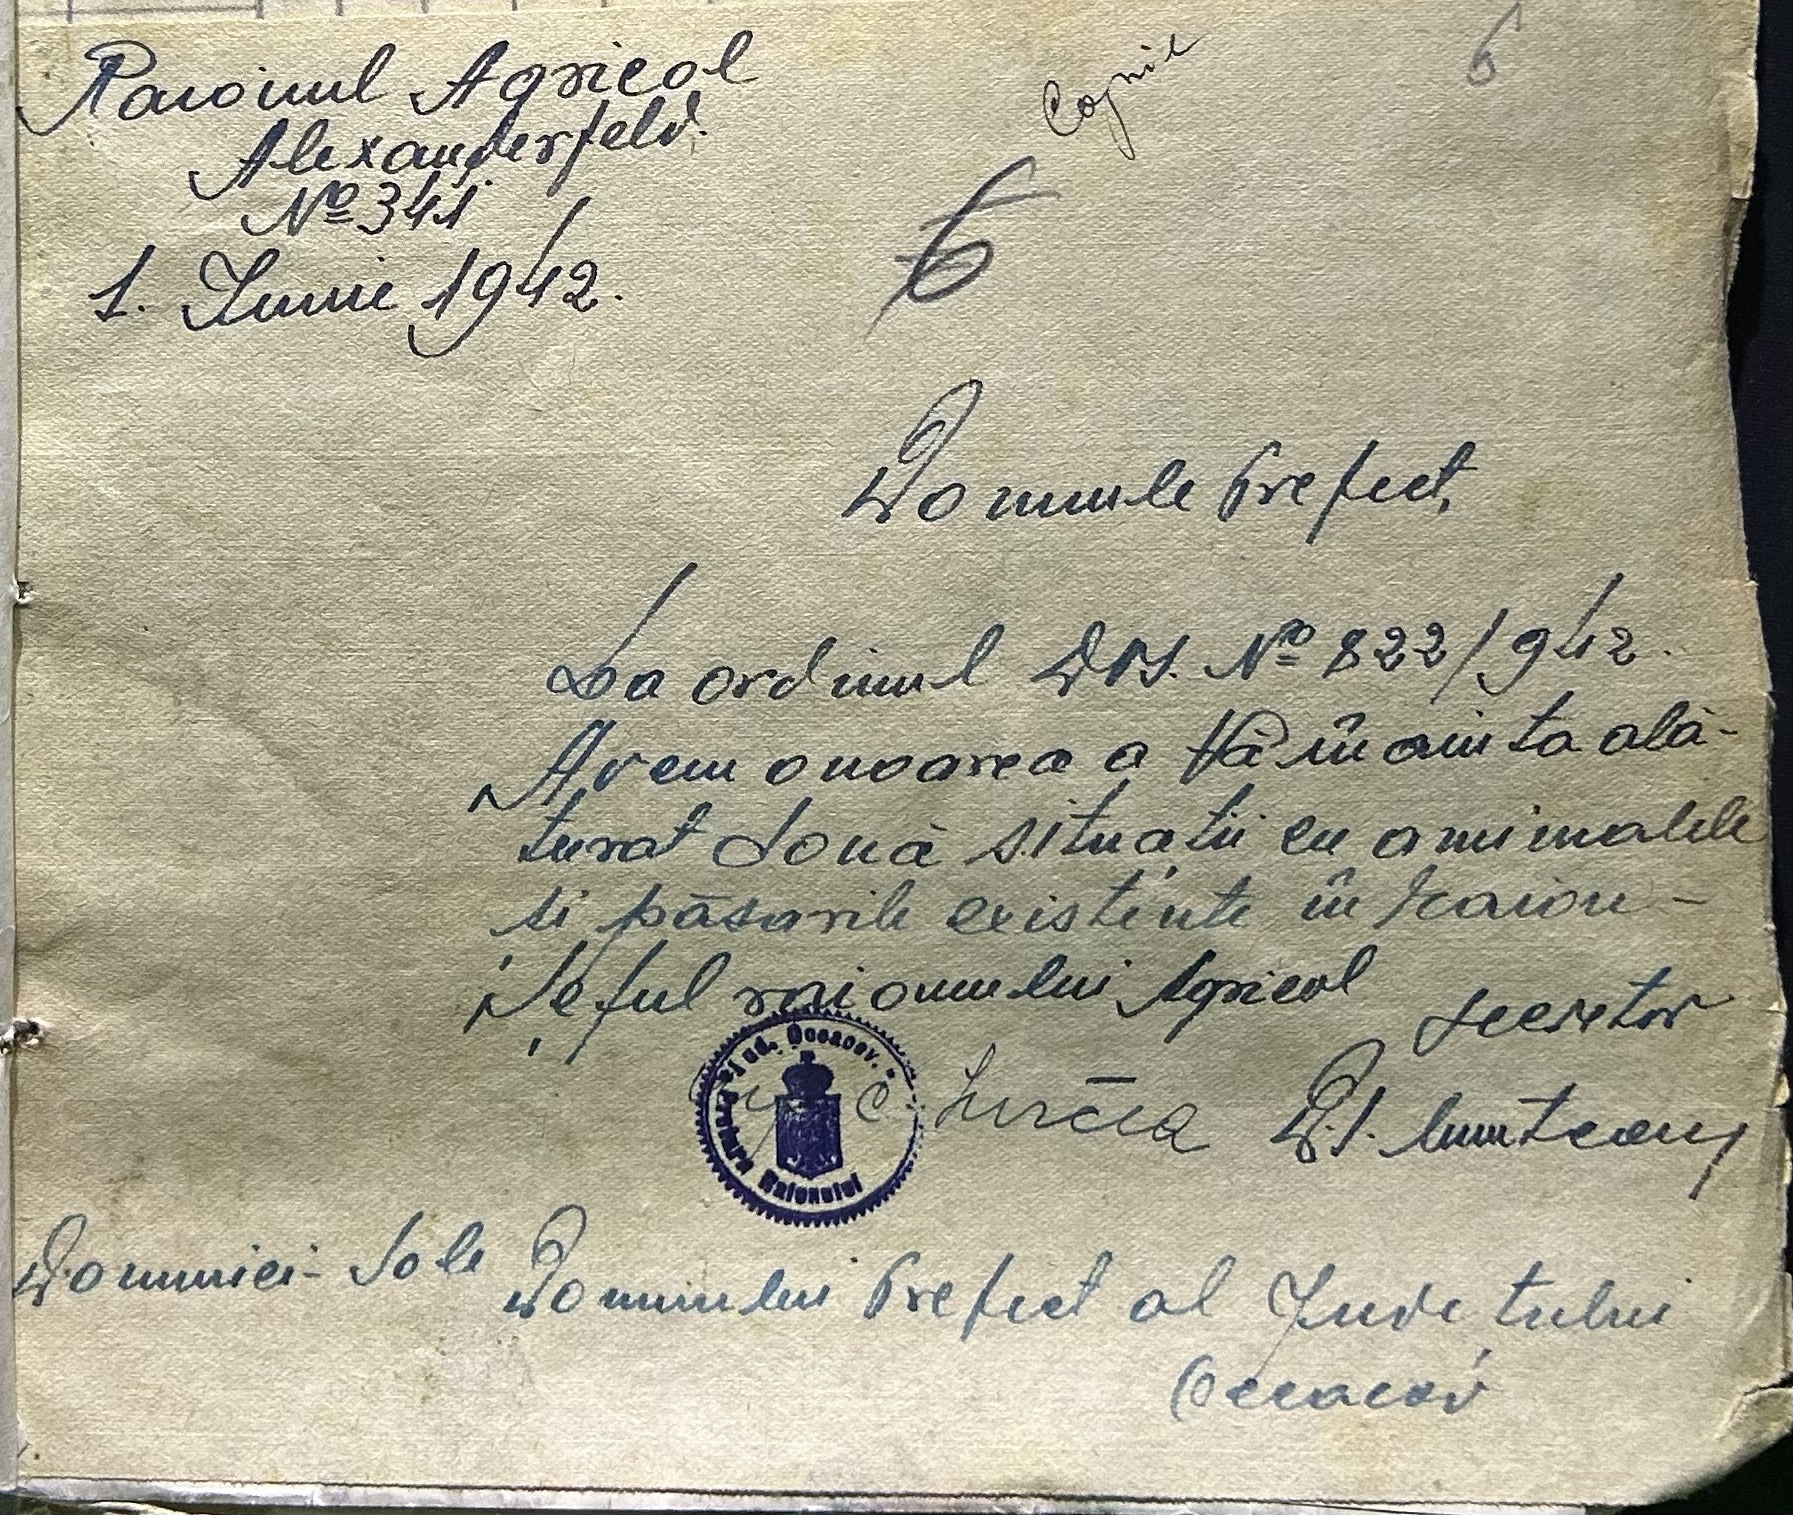 Raionul Agricol
Alexanderfeld.
No 341
1. Iunie 1942.
6
6
Domnule Prefect,
La ordinul DVS. No 822/942.
Avem onoarea a Vă înainta ală-
turat două situații cu animalele
si păsările existente în raion -
Șeful raionului Agricol
secretar
Jud. Oceacov.
Raionului
Munteanu
Domniei-Sale Domnului Prefect al Județului
Oceacov